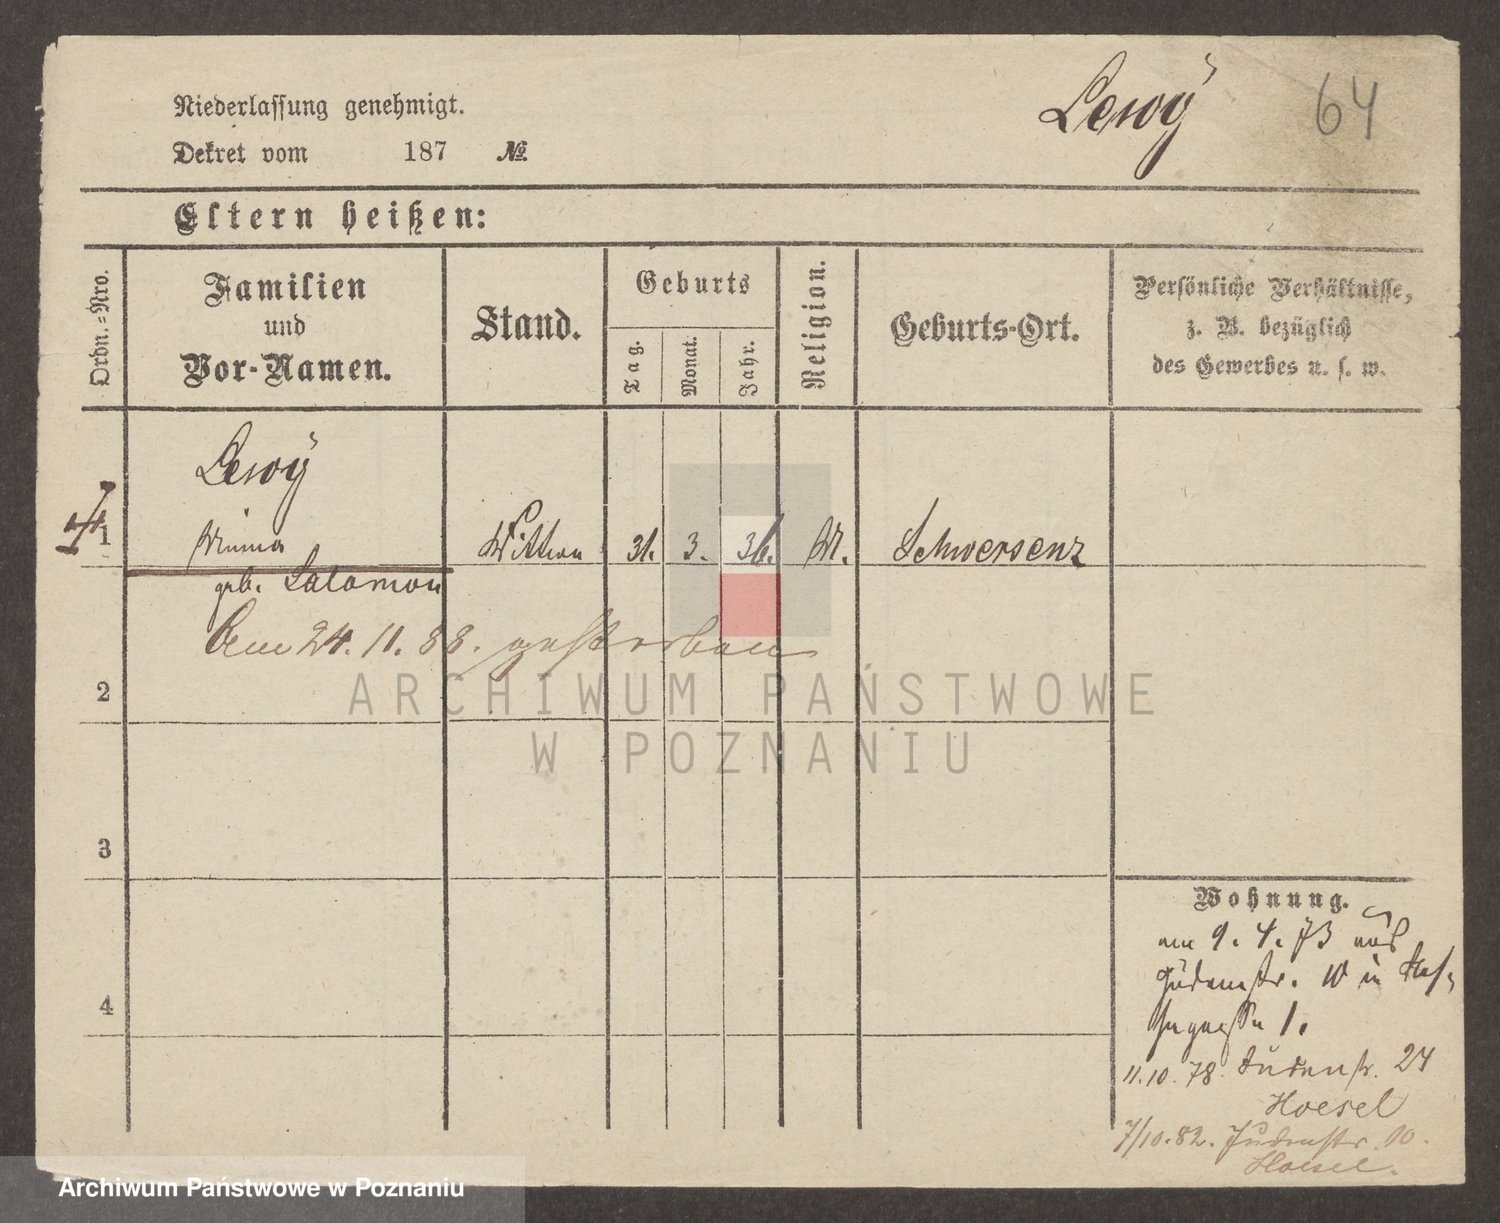 Lewÿ 64
Niederlassung genehmigt.
Dekret vom 187 №
Eltern heißen:
Ordn.-Nro.
Familien
und
Vor-Namen.
Stand.
Geburts
Tag.
Monat.
Jahr.
Religion.
Geburts-Ort.
Persönliche Verhältnisse,
z. B. bezüglich
des Gewerbes u. s. w.
Lewÿ
1 Minna Wittwe 31. 3. 36. M. Schwersenz
geb. Salomon
Am 24. 11. 88. gestorben
2
3
4
Wohnung.
am 9. 4. 73 aus
Judenstr. 10 in
1.
11.10.78. Judenstr. 24
Hoesel
7/10.82. Judenstr. 10.
Hoesel.
ARCHIWUM PAŃSTWOWE
W POZNANIU
Archiwum Państwowe w Poznaniu